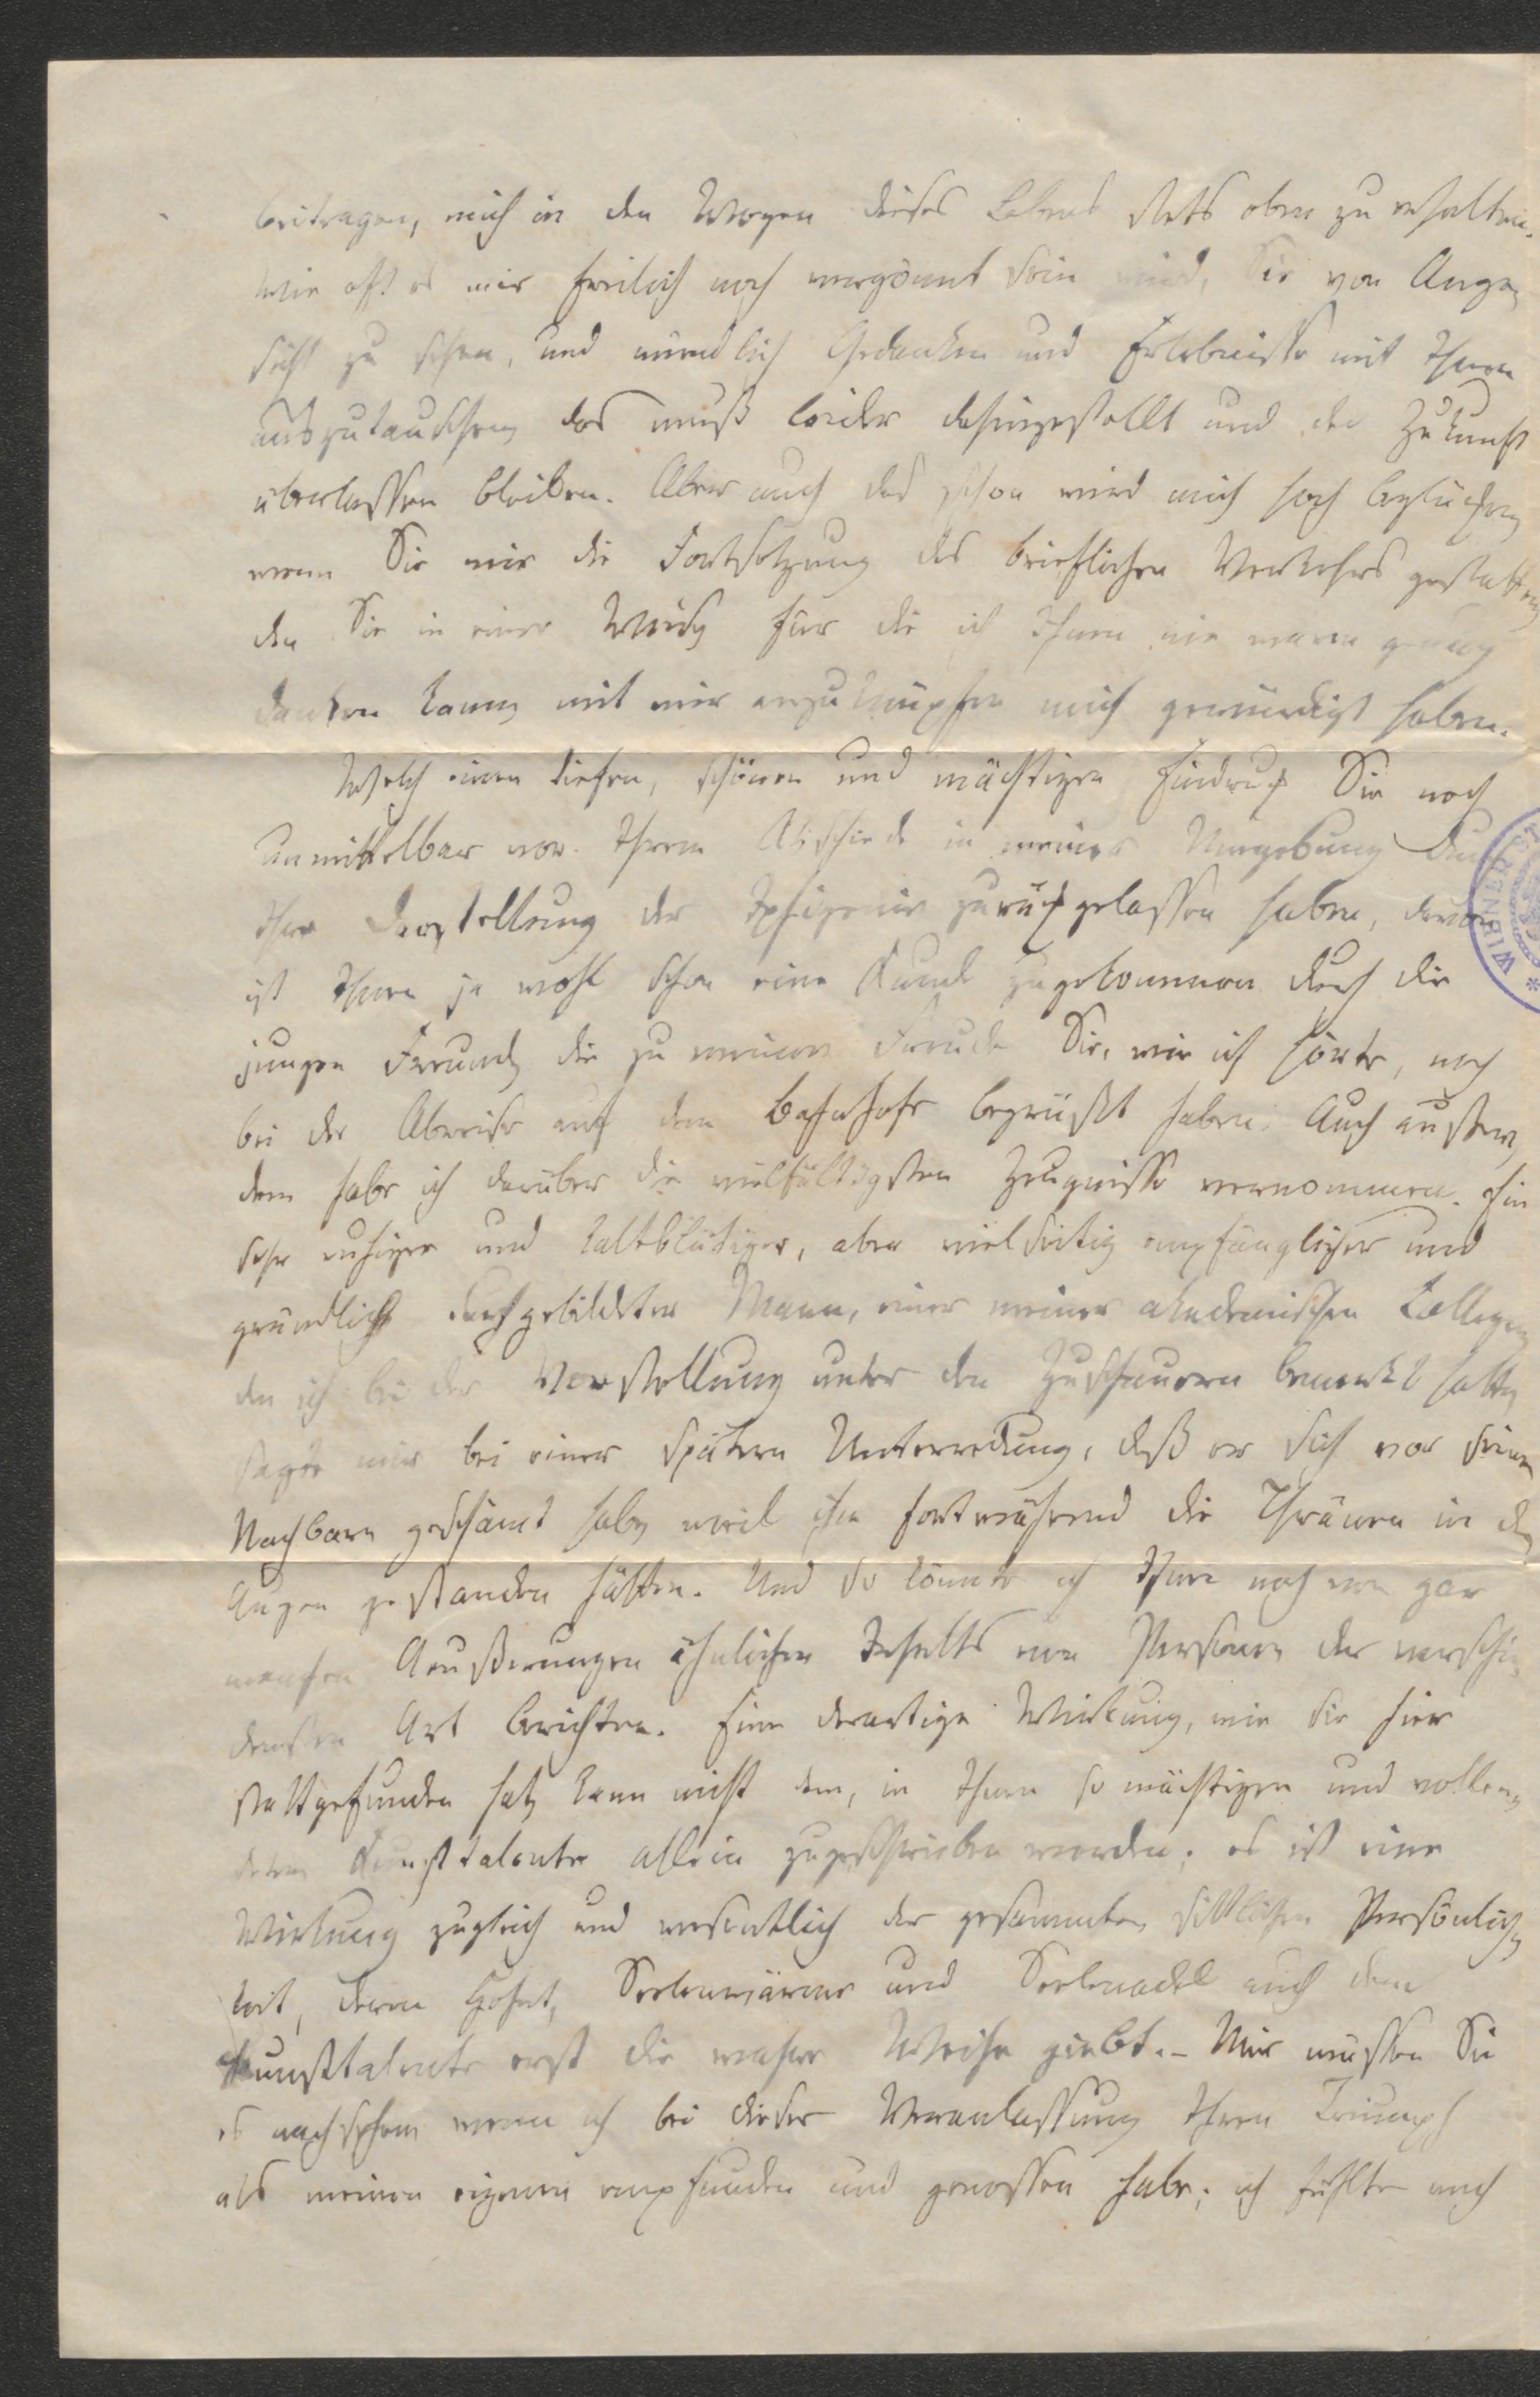 beitragen, mich in den Wogen dieses Lebens stets oben zu erhalten.
Wie oft es mir freilich noch vergönnt sein wird, Sie von Ange-
sicht zu sehen, und mündlich Gedanken und Erlebnisse mit Ihnen
auszutauschen, das muß leider dahingestellt und der Zukunft
überlassen bleiben. Aber auch das schon wird mich hoch beglücken,
wenn Sie mir die Fortsetzung des brieflichen Verkehrs gestatten,
den Sie in einer Weise, für die ich Ihnen nie warm genug
danken kann, mit mir anzuknüpfen mich gewürdigt haben.
Welch einen tiefen, schönen und mächtigen Eindruck Sie noch
unmittelbar vor Ihrem Abschiede in meiner Umgebung durch
Ihre Darstellung der Iphigenie zurückgelassen haben, davon
ist Ihnen ja wohl schon eine Kunde zugekommen durch die
jungen Freunde, die zu meiner Freude Sie, wie ich hörte, noch
bei der Abreise auf dem Bahnhofe begrüßt haben. Auch außer-
dem habe ich darüber die vielfältigsten Zeugnisse vernommen. Ein
sehr ruhiger und kaltblütiger, aber vielseitig empfänglicher und
gründlich durchgebildeter Mann, einer meiner akademischen Collegen,
den ich bei der Vorstellung unter den Zuschauern bemerkt hatte,
sagte mir bei einer spätern Unterredung, daß er sich vor seinen
Nachbarn geschämt habe, weil ihm fortwährend die Thränen in den
Augen gestanden hätten. Und so könnte ich Ihnen noch von gar
manchen Aeußerungen ähnlichen Inhalts von Personen der verschie-
densten Art berichten. Eine derartige Wirkung, wie sie hier
stattgefunden hat, kann nicht dem, in Ihnen so mächtigen und vollen-
deten Kunsttalente allein zugeschrieben werden; es ist eine
Wirkung zugleich und wesentlich der gesammten sittlichen Persönlich-
keit, deren Hoheit, Seelenwärme und Seelenadel auch dem
Kunsttalente erst die wahre Weihe giebt. – Mir müssen Sie
es nachsehen, wenn ich bei dieser Veranlassung Ihren Triumph
als meinen eigenen empfunden und genossen habe; ich fühlte mich
WIENER